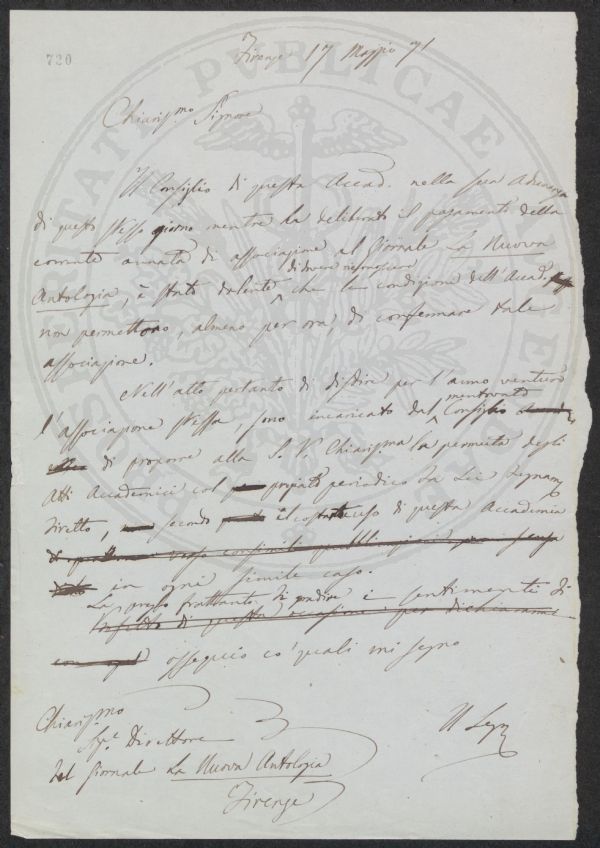 720
Firenze 17 Maggio 71
Chiariss.mo Signore
Il Consiglio di questa Accad. nella sua Adunanza
di questo stesso giorno mentre ha deliberato il pagamento della
corrente annata di associazione al Giornale La Nuova
Antologia, è stato dolente di dover riconoscere che le condizioni dell'Accad.
non permettono, almeno per ora, di confermare tale
associazione.
Nell'atto pertanto di disdire per l'anno venturo
l'associazione stessa, sono incaricato dal mentovato Consiglio
di proporre alla S. V. Chiariss.ma la permuta degli
Atti Accademici col periodico da Lei degnam.
diretto, secondo il costante uso di questa Accademia
in ogni simile caso.
La prego frattanto di gradire i sentimenti di
ossequio co' quali mi segno
Chiariss.mo
Sig.e Direttore
del Giornale La Nuova Antologia
Firenze
Il Seg.